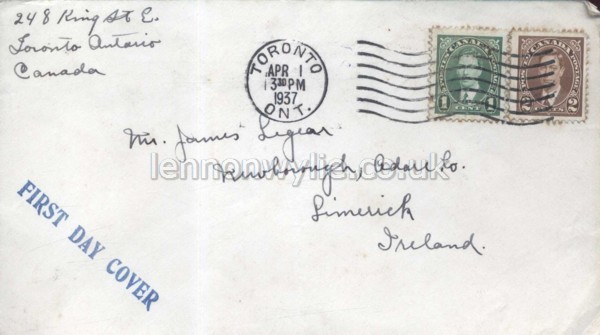 248 King St E.
Toronto Ontario
Canada
TORONTO
APR 1
1330 PM
1937
ONT.
POSTES CANADA POSTAGE
1 1
POSTES CANADA POSTAGE
2
Mr. James Legear
lennonwylie.co.uk
Adare Co.
Limerick
Ireland.
FIRST DAY COVER